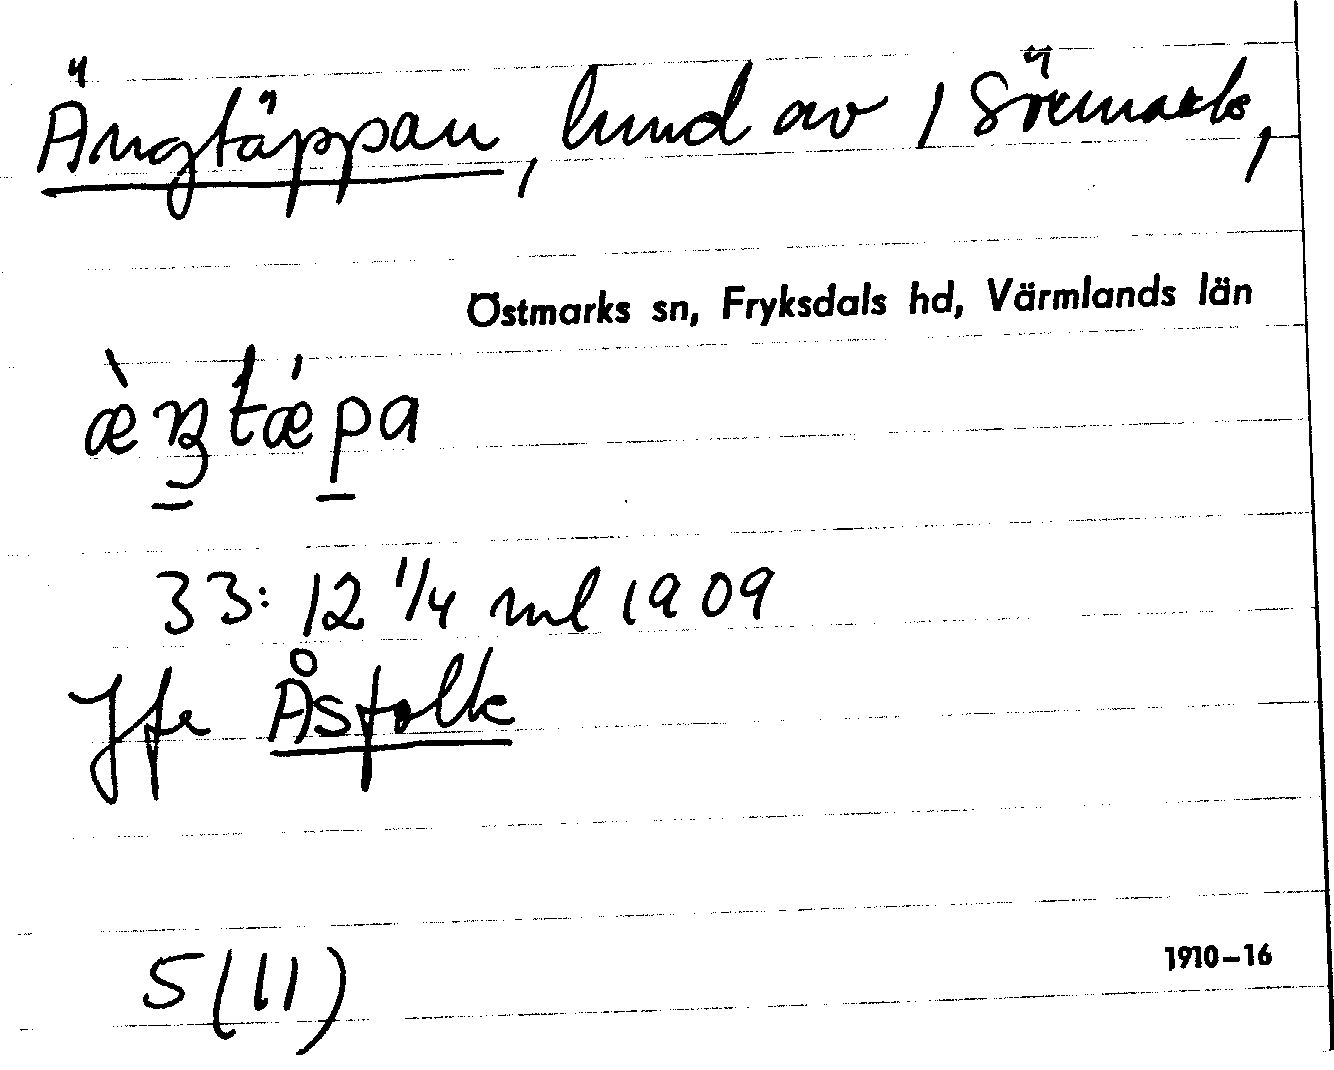 Ängtäppan, lund av 1 Sörmark,
Östmarks sn, Fryksdals hd, Värmlands län
æ̀ŋtǽpa
33: 12 1/4 ml 1909
Jfr Åsfolk
S(11)
1910–16